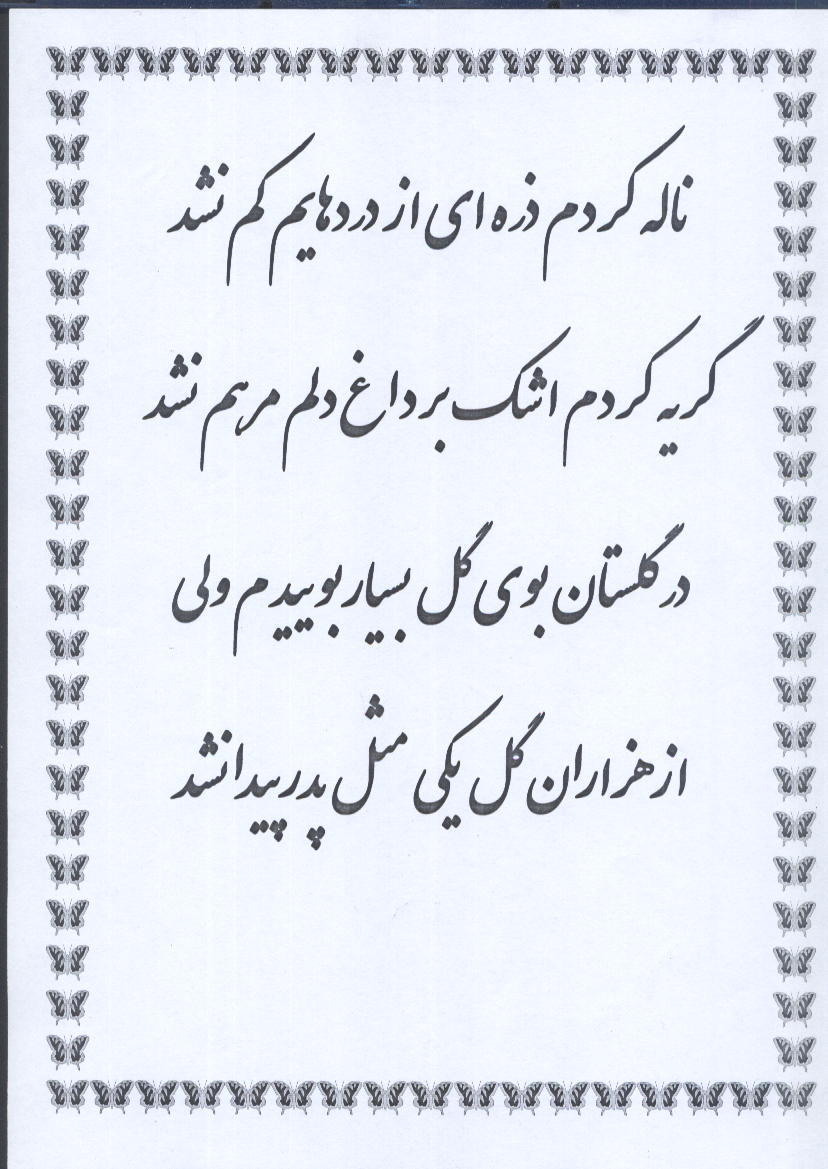 ناله کردم ذره ای از دردهایم کم نشد
گریه کردم اشک بر داغ دلم مرهم نشد
در گلستان بوی گل بسیار بوییدم ولی
از هزاران گل یکی مثل پدر پیدا نشد